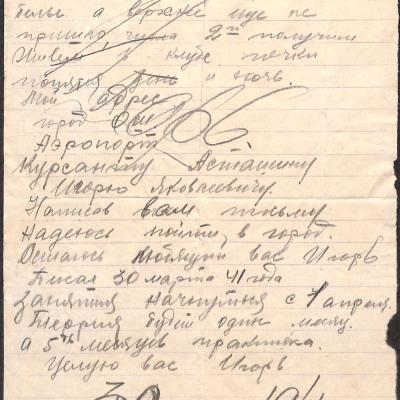 белье а верхнее еще не
пришло, числа 2го получим
Живем в клубе печки
топятся день и ночь.
Мой адрес
город Ош
Аэропорт
Курсанту Асташину
Игорю Яковлевичу.
Написав вам письмо
Надеюсь пойти в город.
Остаюсь любящий вас Игорь
Писал 30 марта 41 года
Занятия начнутся с 1 апреля.
Теория будет один месяц.
а 5ть месяцев практика.
Целую вас Игорь